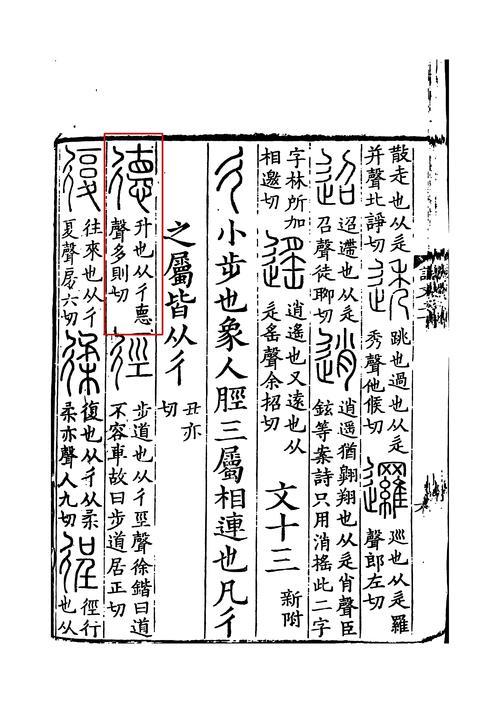 散走也从辵并聲北諍切 透 跳也過也从辵秀聲他候切 邏 巡也从辵羅聲郎左切
迢 迢遰也从辵召聲徒聊切 逍 逍遙猶翱翔也从辵肖聲臣鉉等案詩只用消搖此二字
字林所加相邀切 遙 逍遙也又遠也从辵䍃聲余招切 文十三 新附
彳 小步也象人脛三屬相連也凡彳
之屬皆从彳 丑亦切
德 升也从彳悳聲多則切 徑 步道也从彳巠聲徐鍇曰道不容車故曰步道居正切
復 往來也从彳复聲房六切 䋴 復也从彳从柔柔亦聲人九切 徎 徑行也从